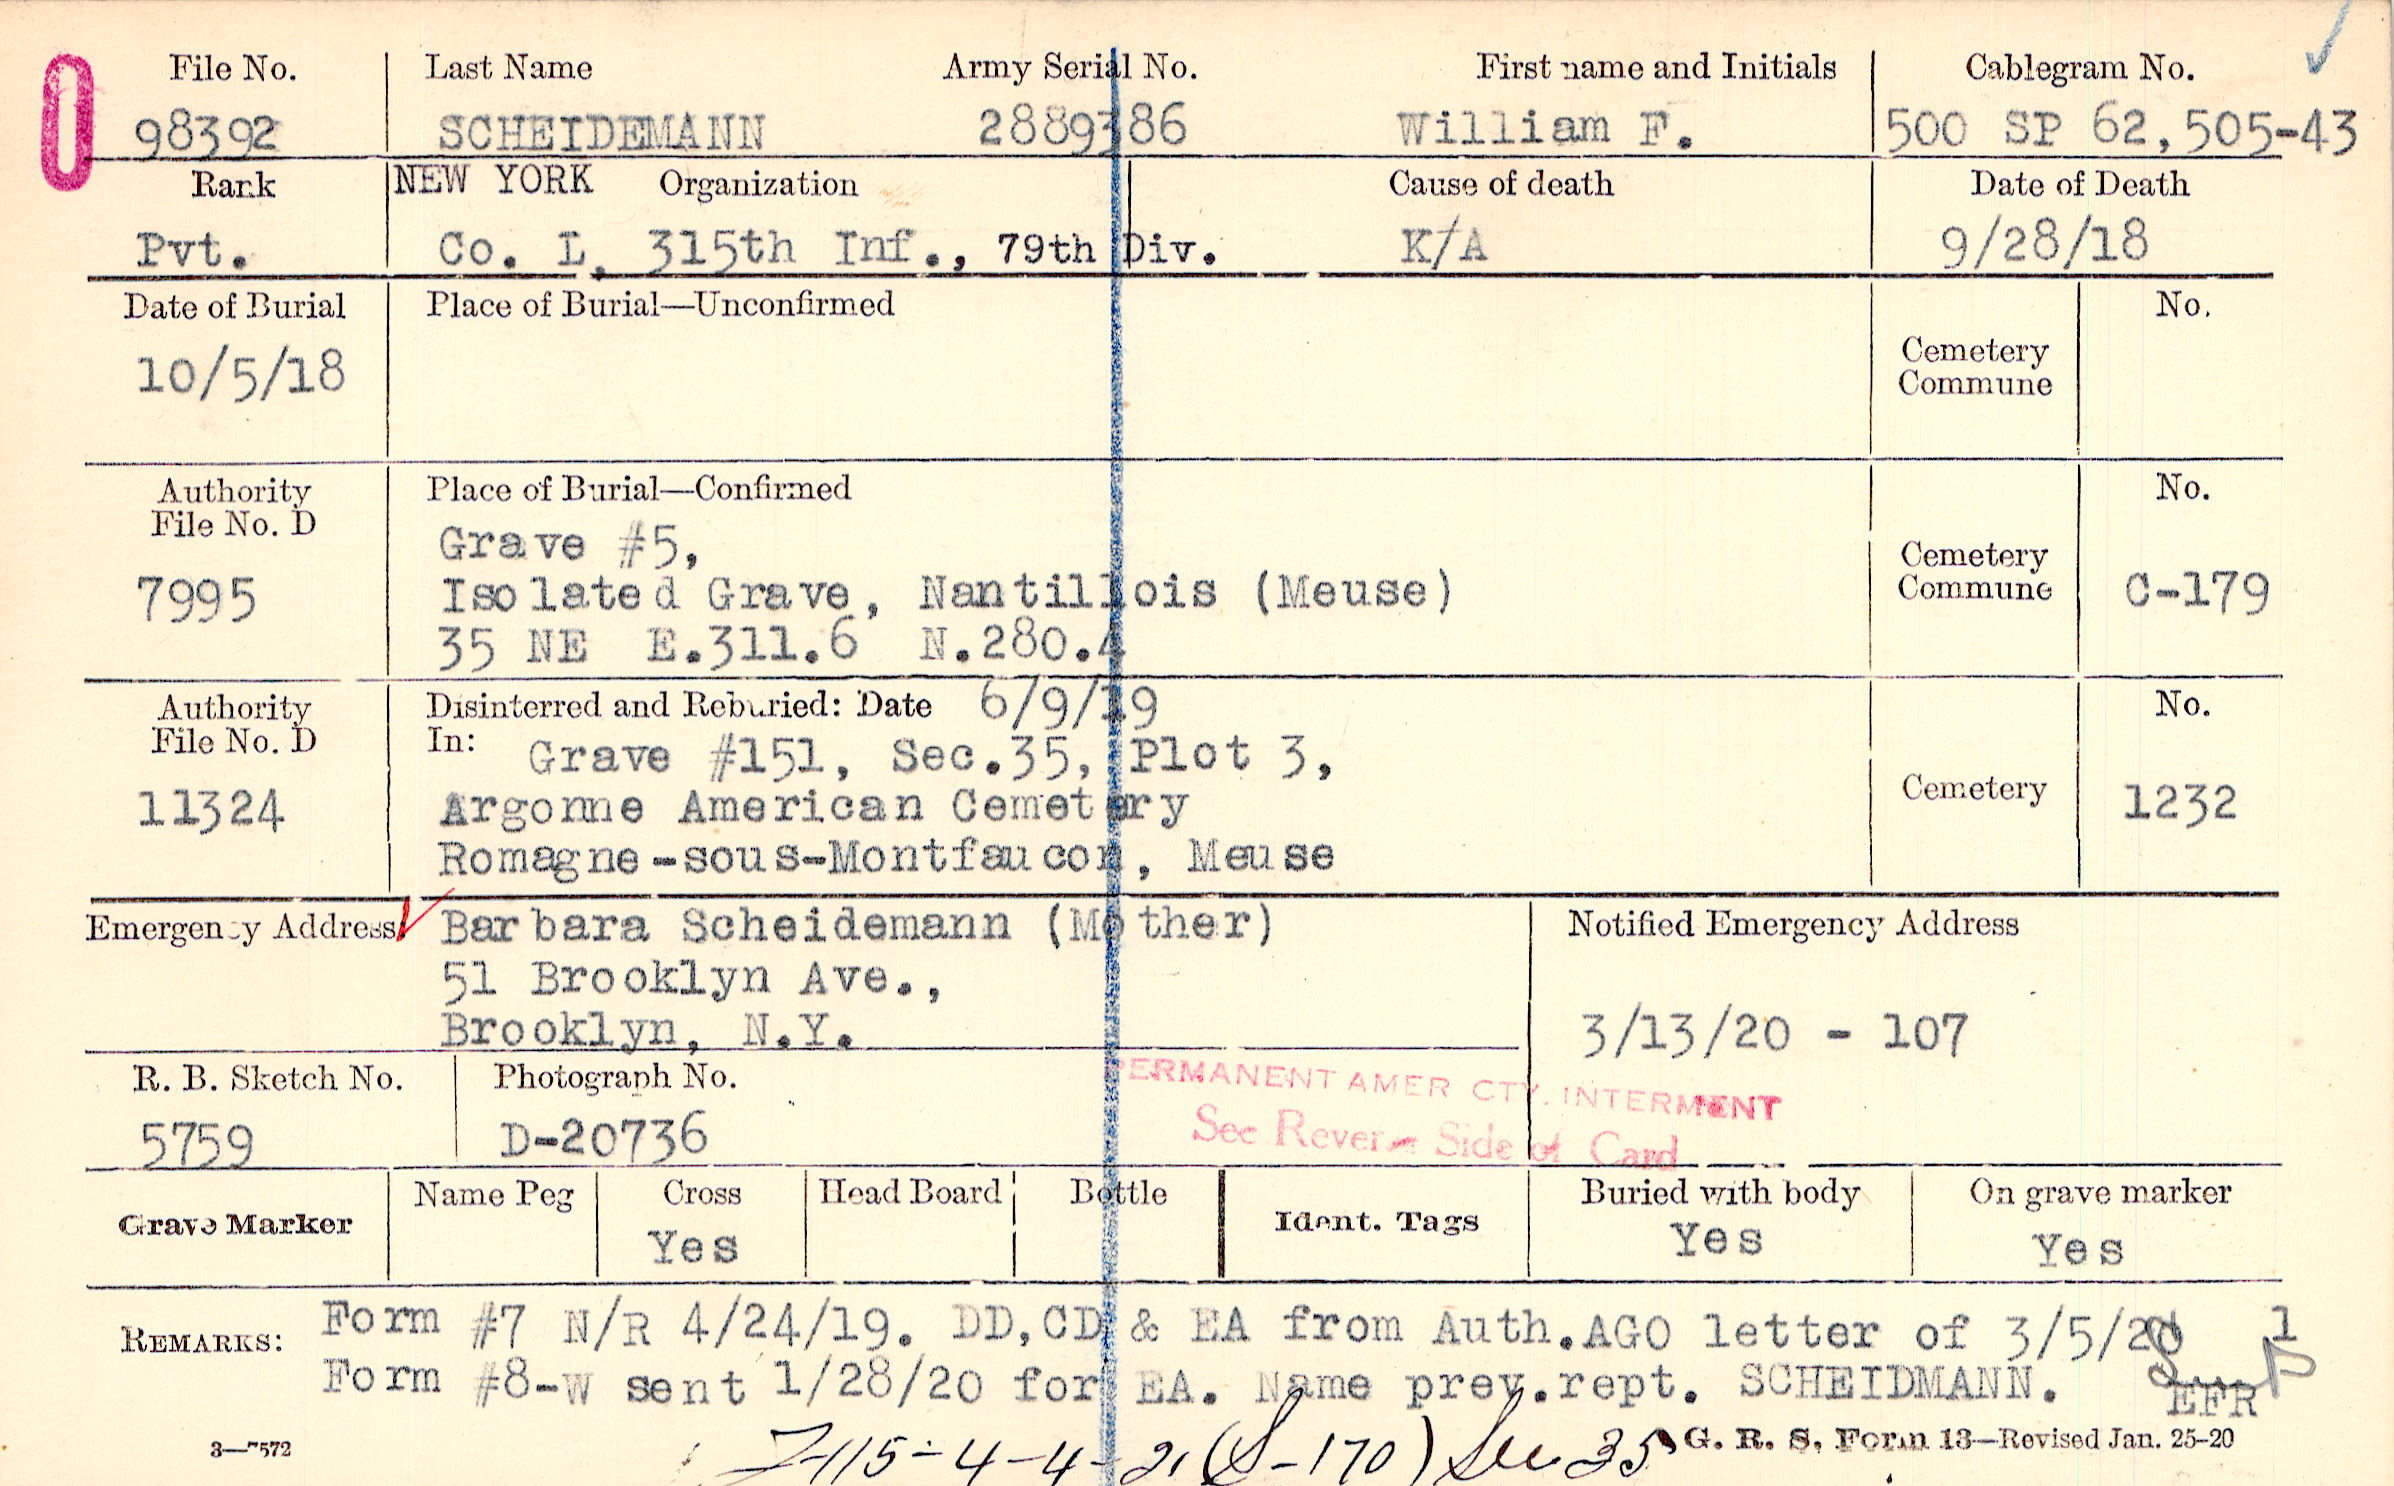 File No. Last Name Army Serial No. First name and Initials Cablegram No.
98392 SCHEIDEMANN 2889386 William F. 500 SP 62,505-43
Rank NEW YORK Organization Cause of death Date of Death
Pvt. Co. L, 315th Inf., 79th Div. K/A 9/28/18
Date of Burial Place of Burial—Unconfirmed No.
10/5/18 Cemetery
Commune
Authority Place of Burial—Confirmed No.
File No. D Grave #5,
7995 Isolated Grave, Nantillois (Meuse) Cemetery
Commune C-179
35 NE E.311.6 N.280.4
Authority Disinterred and Reburied: Date 6/9/19 No.
File No. D In: Grave #151, Sec.35, Plot 3,
11324 Argonne American Cemetery Cemetery 1232
Romagne-sous-Montfaucon, Meuse
Emergency Address Barbara Scheidemann (Mother) Notified Emergency Address
51 Brooklyn Ave.,
Brooklyn, N.Y. 3/13/20 - 107
R. B. Sketch No. Photograph No. PERMANENT AMER CTY. INTERMENT
5759 D-20736 See Reverse Side of Card
Grave Marker Name Peg Cross Head Board Bottle Ident. Tags Buried with body On grave marker
Yes Yes Yes
REMARKS: Form #7 N/R 4/24/19. DD,CD & EA from Auth.AGO letter of 3/5/20 1
Form #8-W sent 1/28/20 for EA. Name prev.rept. SCHEIDMANN. EFR
3—7572 7-115-4-4-21 (S-170) Sec 35 G. R. S. Form 13—Revised Jan. 25-20